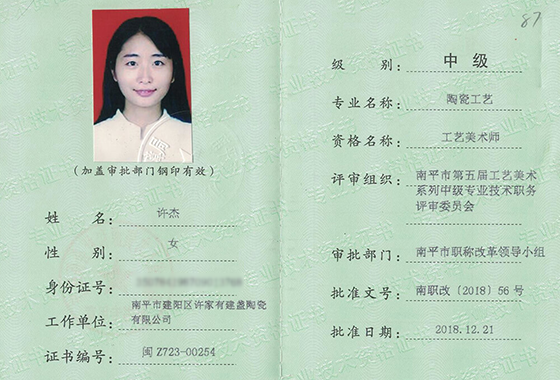 (加盖审批部门钢印有效)
姓 名： 许杰
性 别： 女
身份证号：
工作单位： 南平市建阳区许家有建盏陶瓷
有限公司
证书编号： 闽Z723-00254
87
级 别： 中 级
专业名称： 陶瓷工艺
资格名称： 工艺美术师
评审组织： 南平市第五届工艺美术
系列中级专业技术职务
评审委员会
审批部门： 南平市职称改革领导小组
批准文号： 南职改〔2018〕56 号
批准日期： 2018.12.21